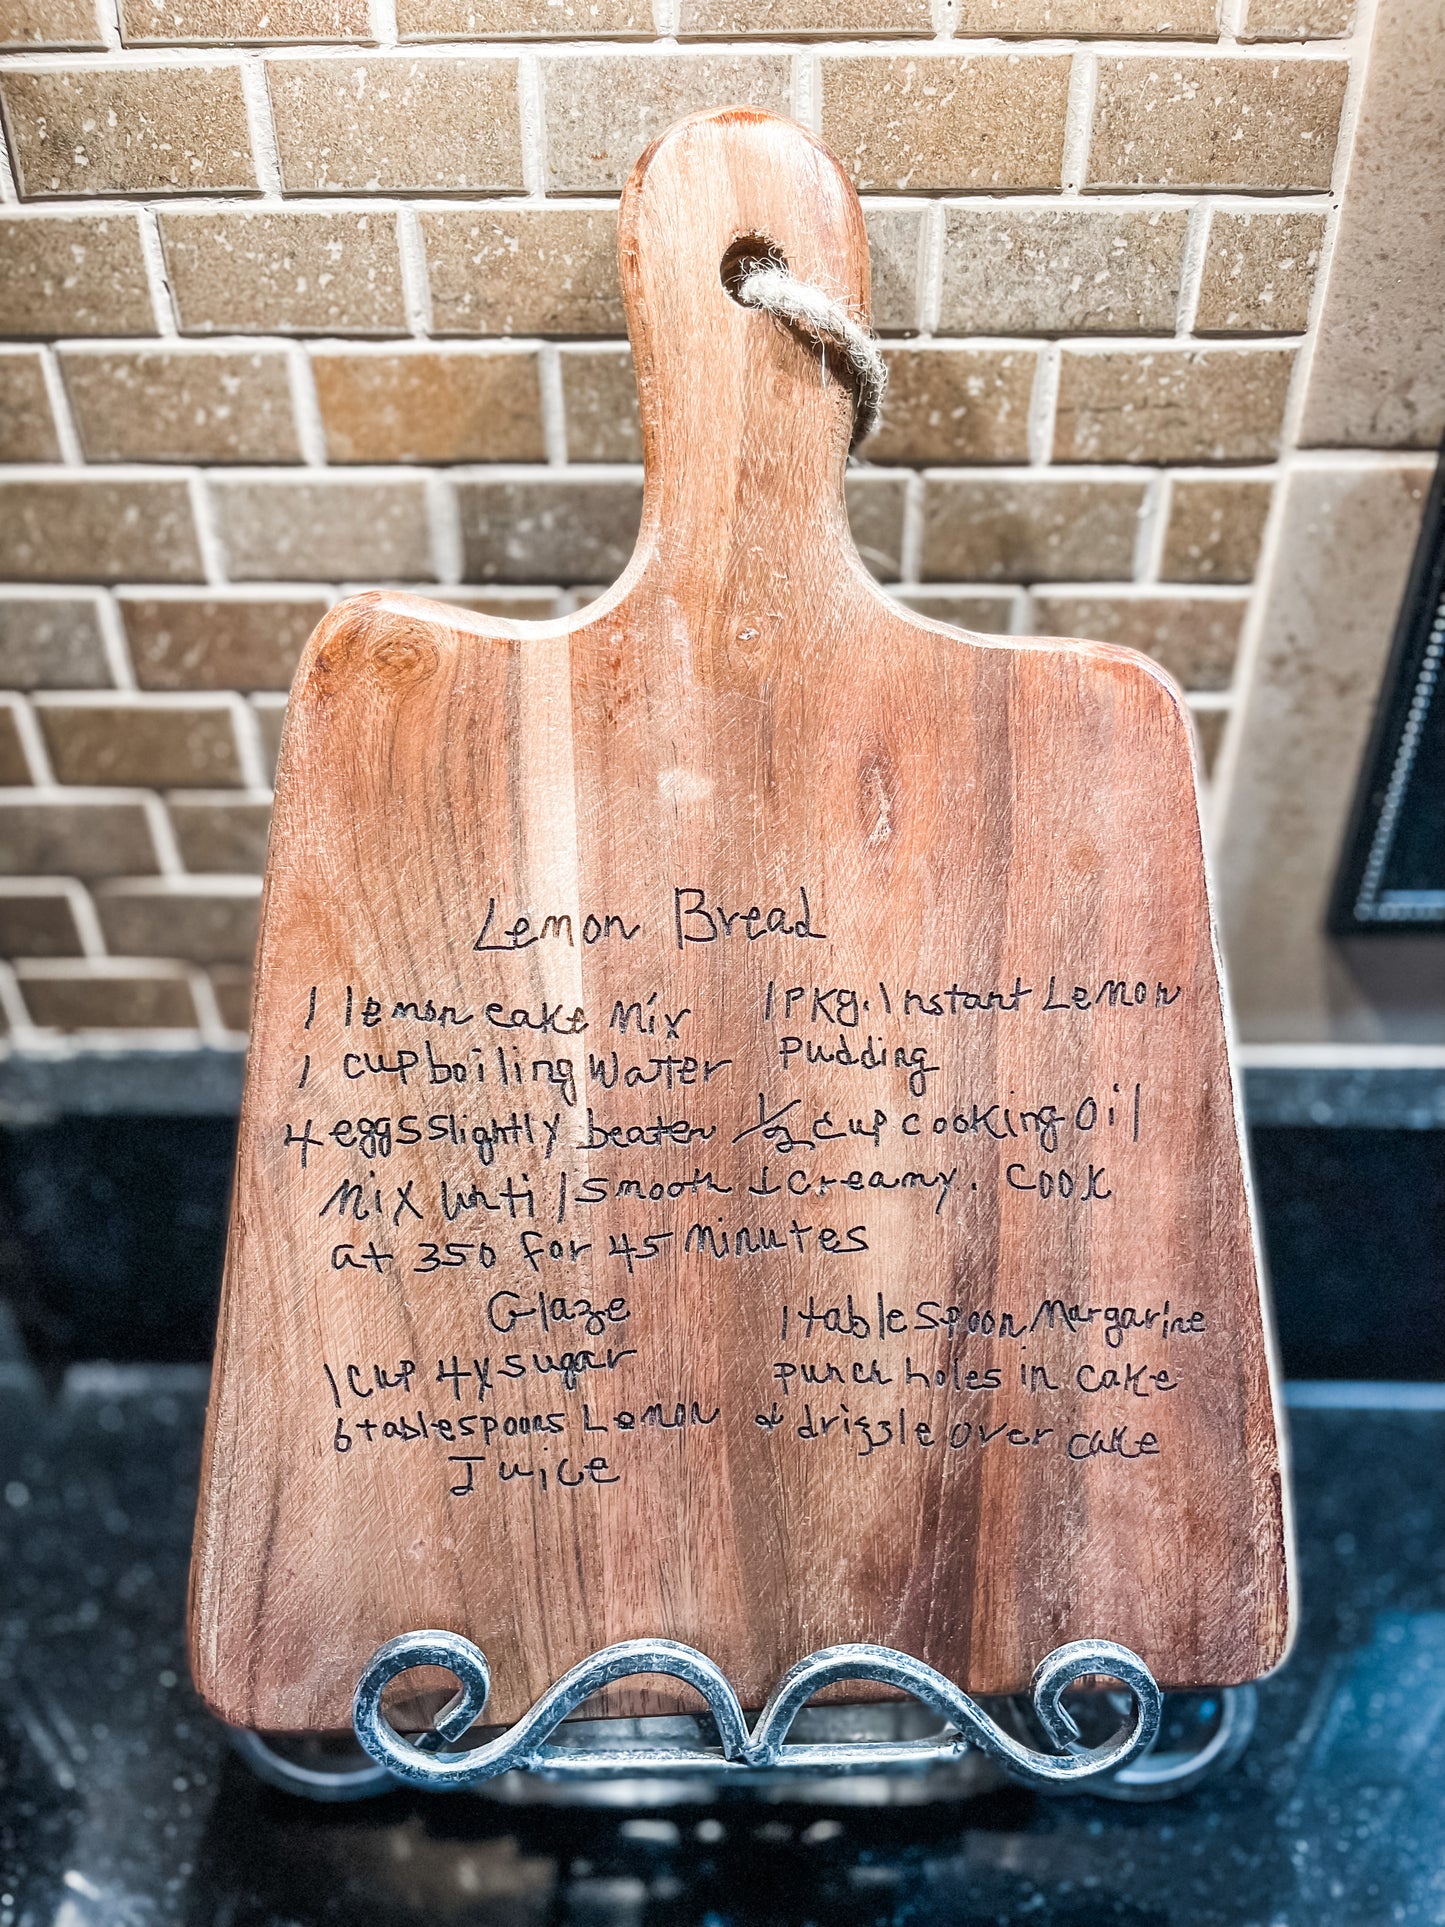 Lemon Bread
1 lemon cake Mix
1 Pkg. Instant Lemon
Pudding
1 cup boiling Water
4 eggs slightly beaten
1/2 cup cooking Oil
Mix until smooth & creamy. Cook
at 350 for 45 Minutes
Glaze
1 cup 4X sugar
6 tablespoons Lemon
Juice
1 tablespoon Margarine
punch holes in cake
& drizzle over cake